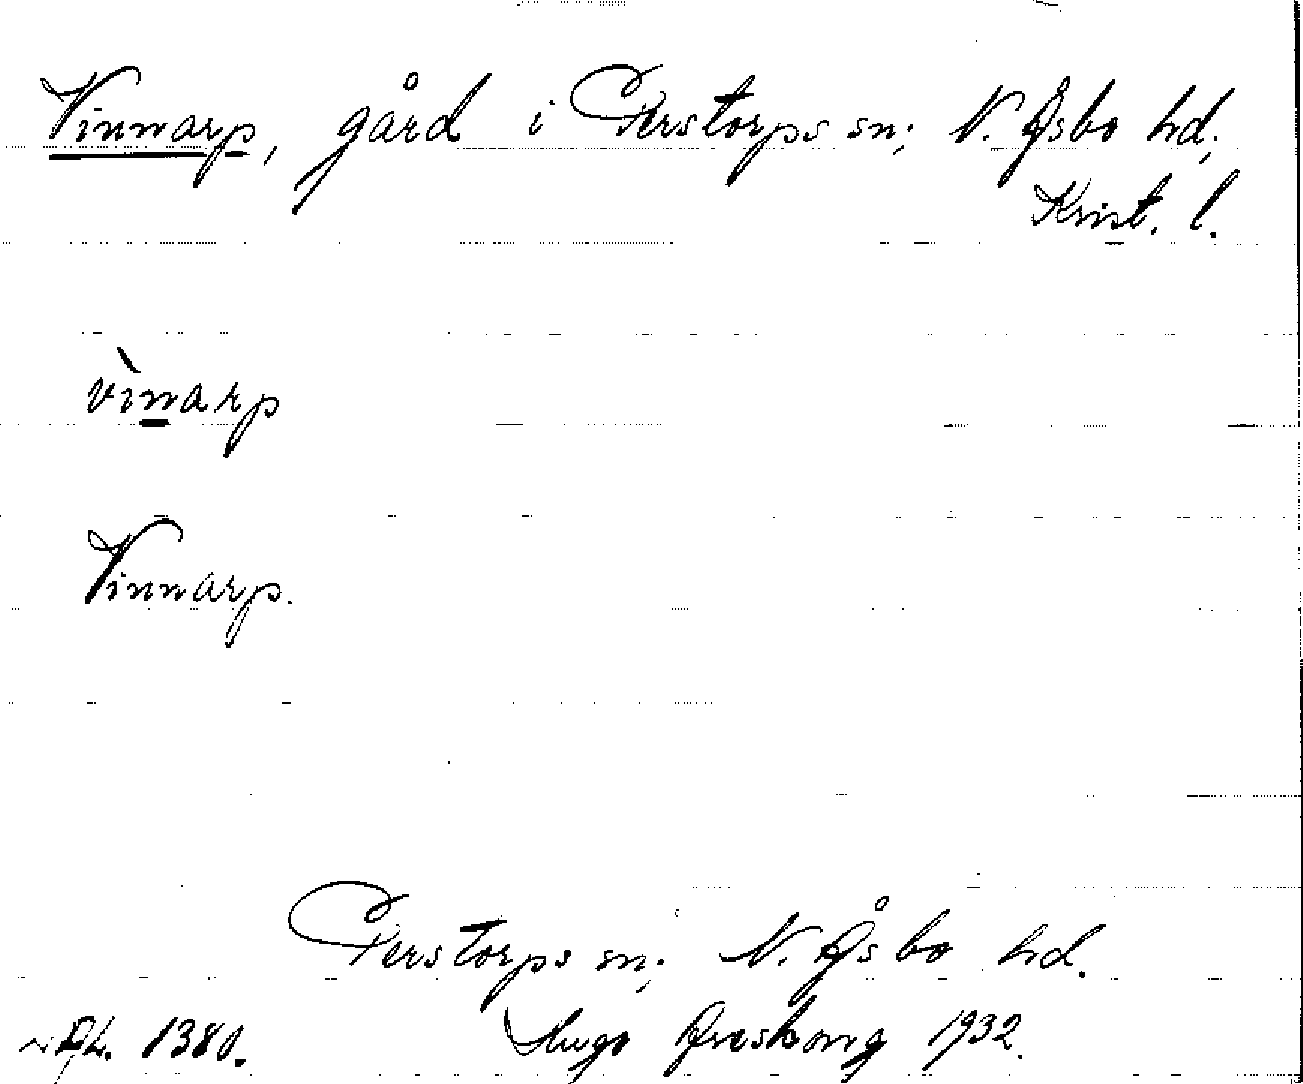 Vinnarp, gård i Perstorps sn; N. Åsbo hd;
Krist. l.
vìnarp
Vinnarp.
Perstorps sn; N. Åsbo hd.
1380. Hugo Areskoug 1932.